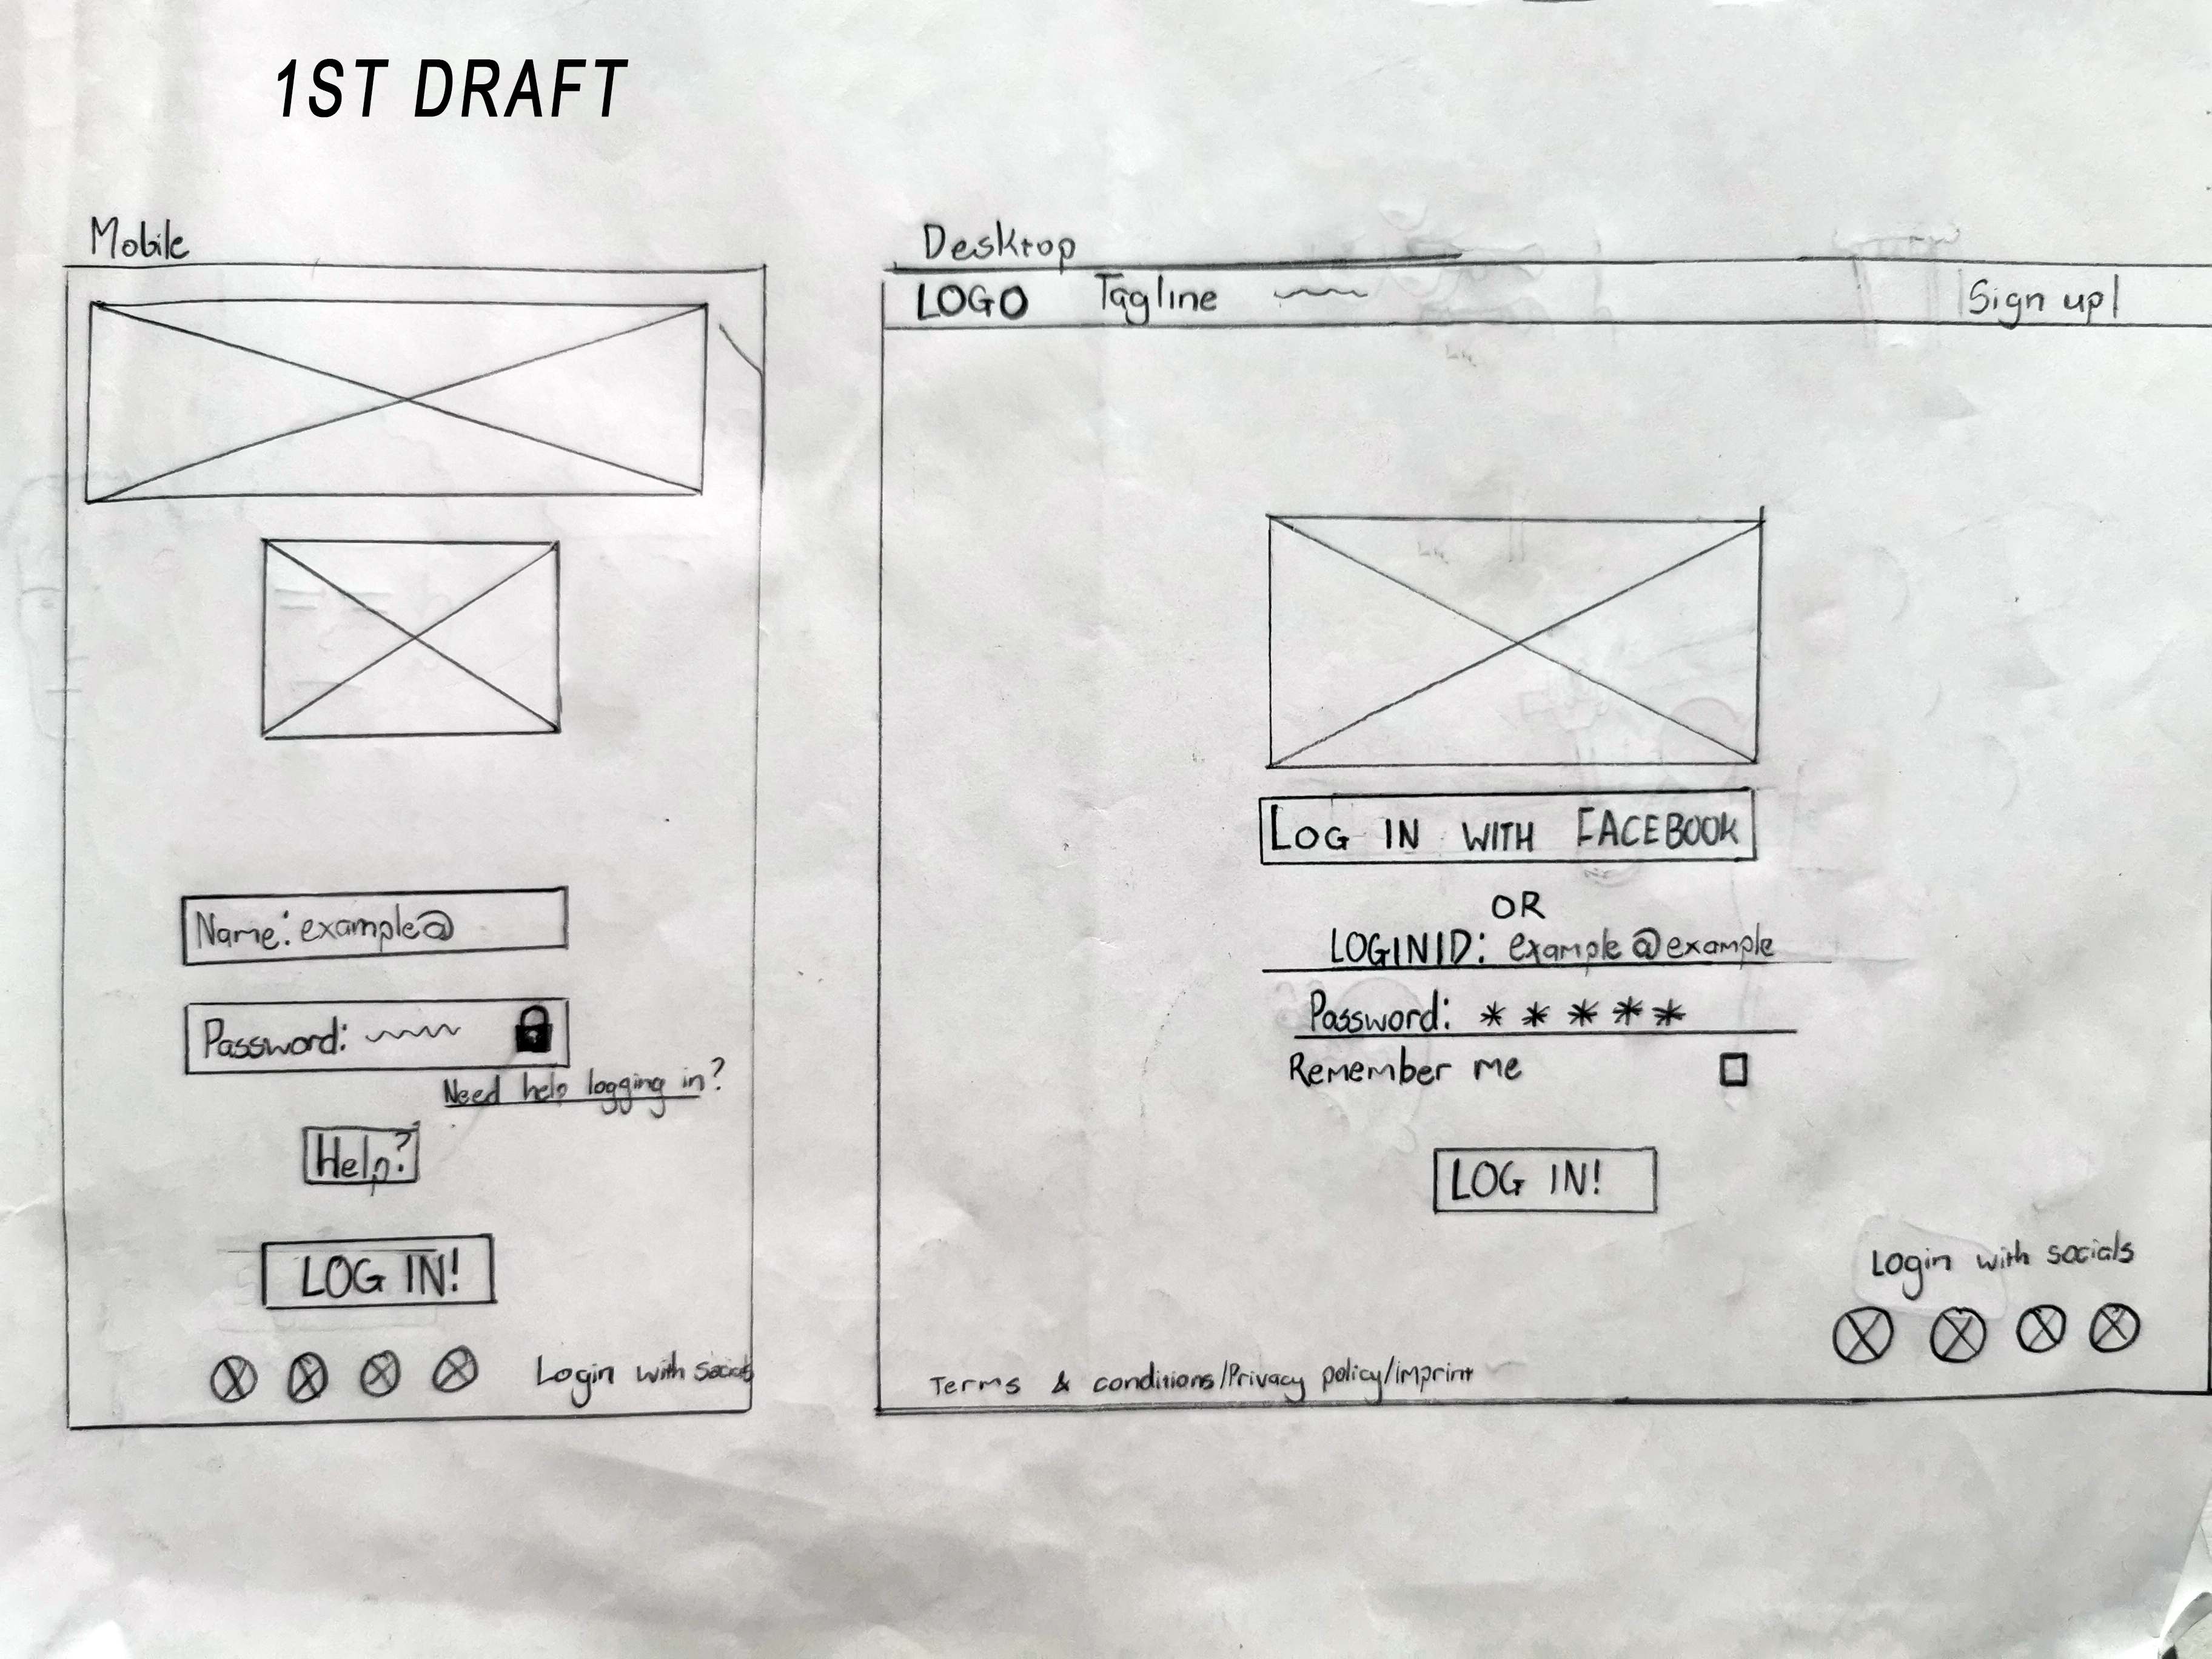 1ST DRAFT
Mobile
Name: example@
Password:
Need help logging in?
Help?
LOG IN!
Login with socials
Desktop
LOGO Tagline Sign up
LOG IN WITH FACEBOOK
OR
LOGINID: example@example
Password: * * * * *
Remember me
LOG IN!
Login with socials
Terms & conditions/Privacy policy/imprint